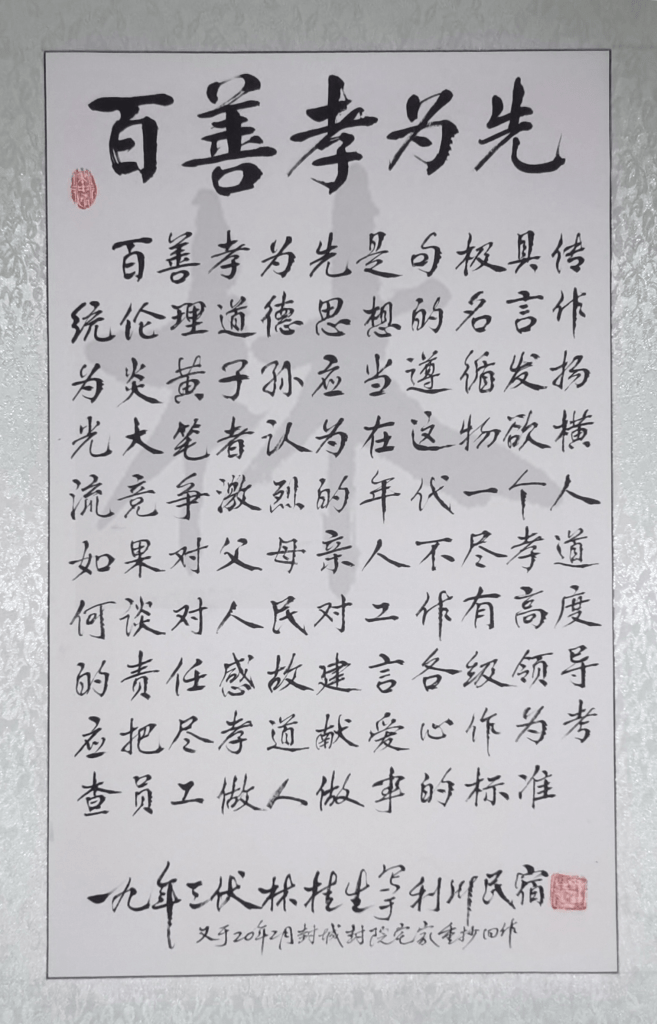 百善孝为先
百善孝为先是句极具传
统伦理道德思想的名言作
为炎黄子孙应当遵循发扬
光大笔者认为在这物欲横
流竞争激烈的年代一个人
如果对父母亲人不尽孝道
何谈对人民对工作有高度
的责任感故建言各级领导
应把尽孝道献爱心作为考
查员工做人做事的标准
一九年三伏林桂生写于利川民宿
又于20年2月封城封院宅家重抄旧作
林